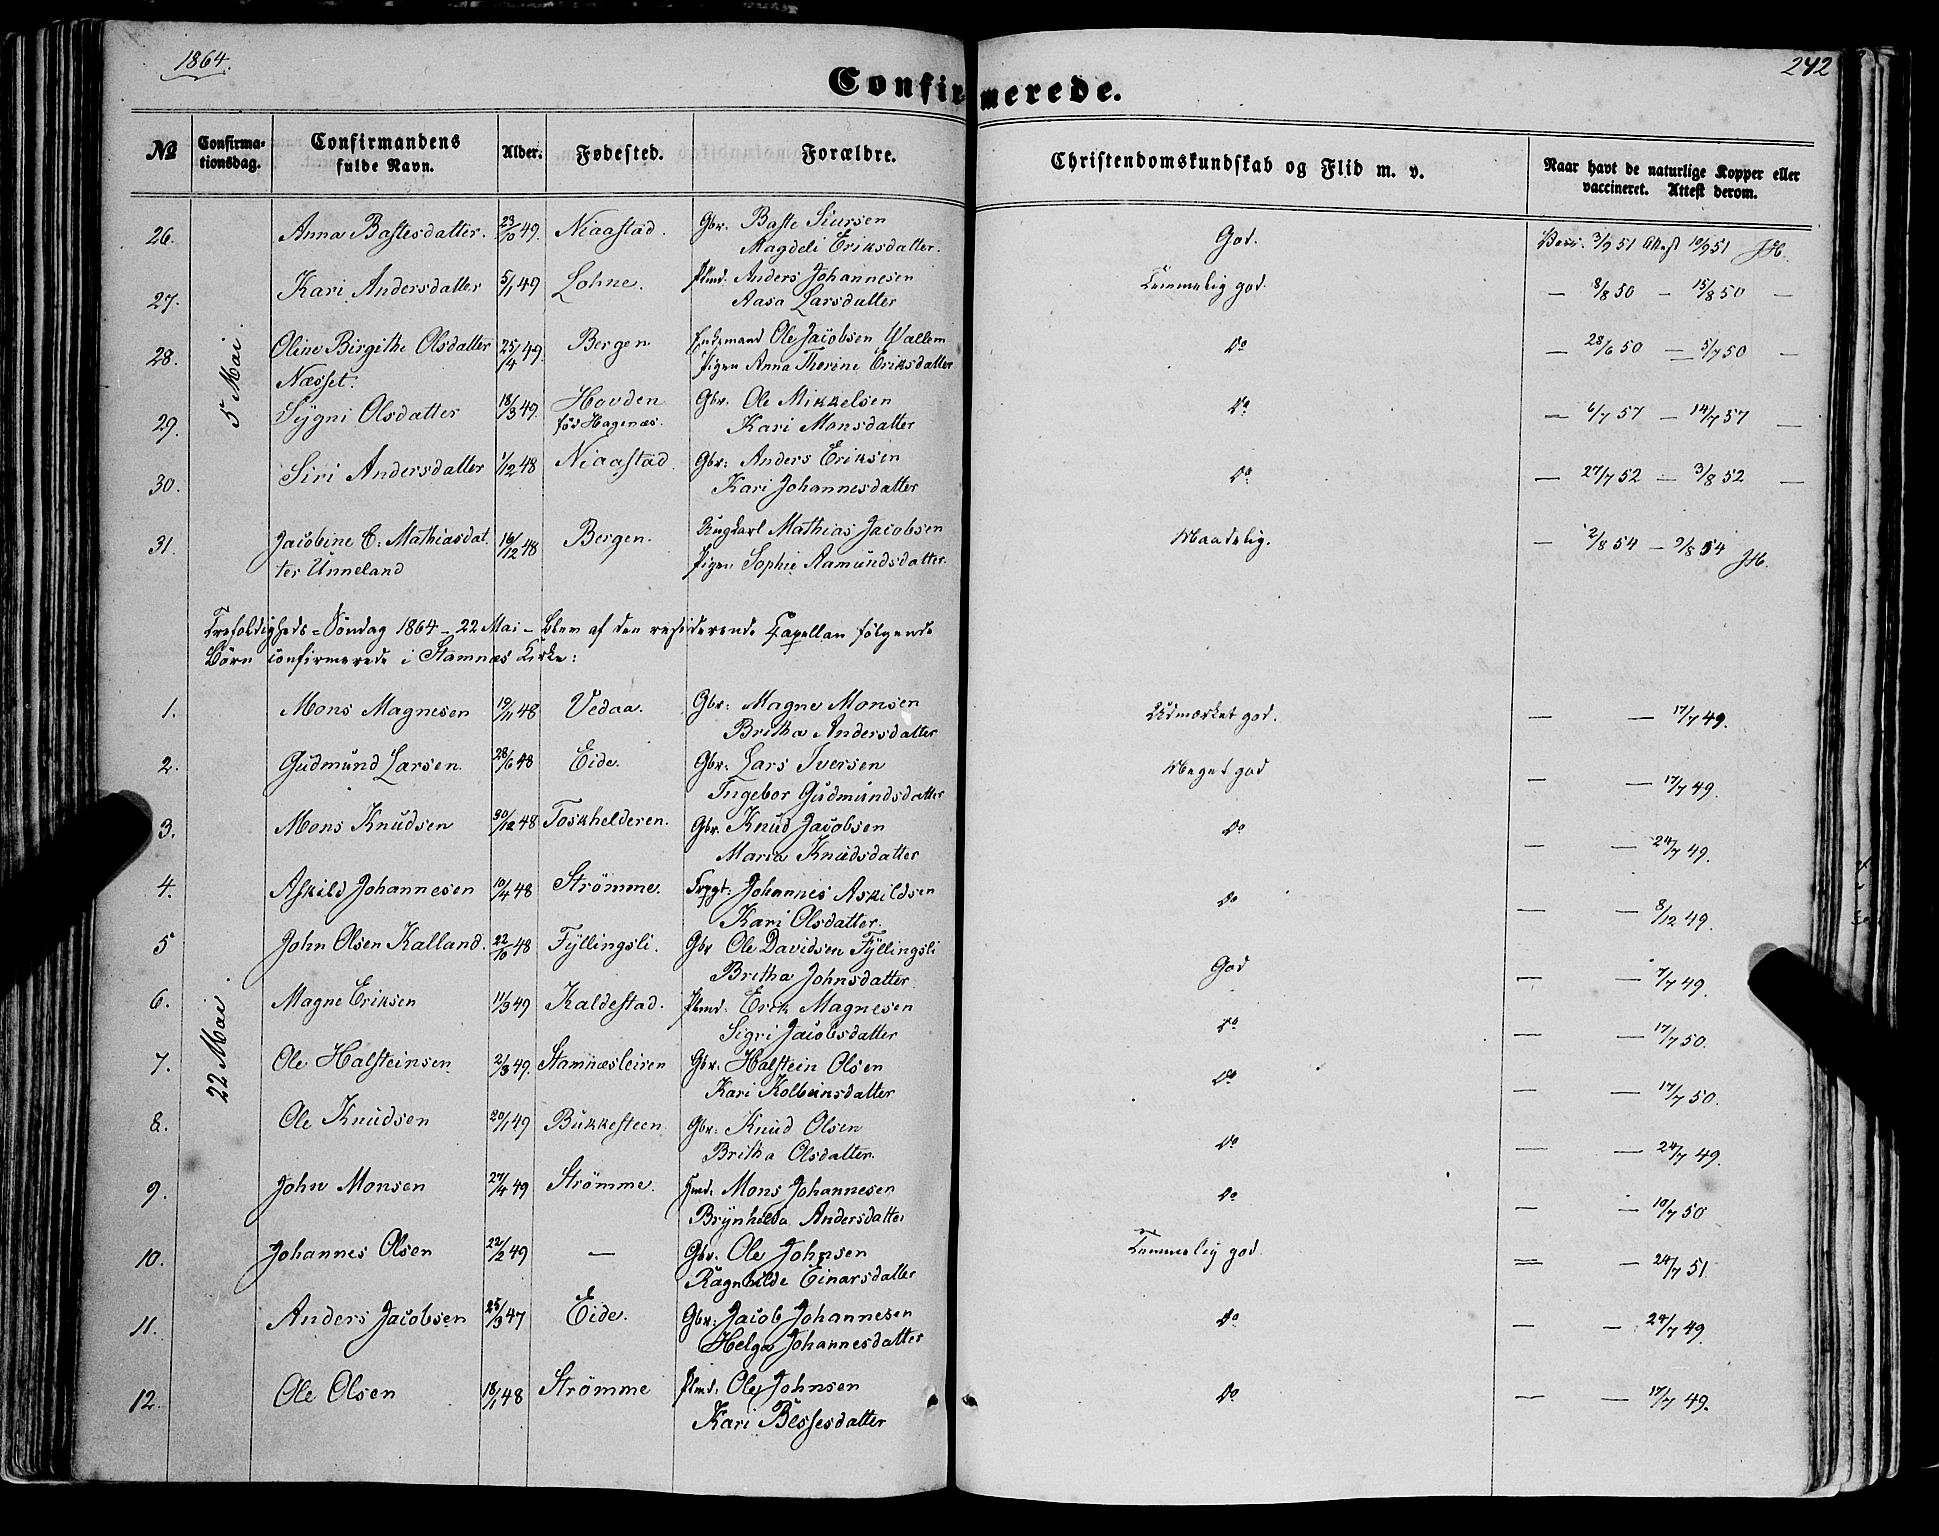 1864.
242
Confirmerede.
№
Confirma-
tionsdag.
Confirmandens
fulde Navn.
Alder.
Fødested.
Forældre.
Christendomskundskab og Flid m. v.
Naar havt de naturlige Kopper eller
vaccineret. Attest derom.
5 Mai
26. Anna Bastesdatter. 23/10 49. Niaastad. Gbr. Baste Siursen God. 3/9 51 Attest 10/9 51
Magdeli Eriksdatter.
27. Kari Andersdatter 5/1 49 Lohne. Plmd. Anders Johannesen Temmelig god. — 8/8 50 — 15/8 50 —
Aasa Larsdatter
28. Oline Birgithe Olsdatter 25/4 49. Bergen Ole Jacobsen Vallem Do — 28/6 50 — 5/7 50 —
Næsset. Pigen Anna Thorine Eriksdatter
29. Sygni Olsdatter 18/3 49. Hovden Gbr. Ole Mikkelsen Do — 6/7 57 — 14/7 57 —
før Hagenæs. Kari Monsdatter
30. Siri Andersdatter 1/12 48 Niaastad. Gbr: Anders Eriksen Do — 27/7 52 — 3/8 52 —
Kari Johannesdatter
31. Jacobine E. Mathiasdat. 16/12 48 Bergen. Ungkarl Mathias Jacobsen Maadelig. — 2/8 54 — 9/8 54
ter Unneland Pigen Sophie Aamundsdatter.
Trefoldigheds=Søndag 1864 – 22 Mai – blev af den residerende Capellan følgende
Børn confirmerede i Stamnæs Kirke:
22 Mai
1. Mons Magnesen 19/11 48 Vedaa. Gbr: Magne Monsen Udmærket god. — — 17/7 49.
Britha Andersdatter
2. Gudmund Larsen 28/6 48 Eide. Gbr. Lars Iversen Meget god — — 17/7 49.
Ingebor Gudmundsdatter
3. Mons Knudsen 30/12 48 Toskhelderen. Gbr. Knud Jacobsen Do — — 24/7 49.
Maria Knudsdatter
4. Askild Johannesen 10/4 48 Strömme. Johannes Askildsen Do — — 8/12 49.
Kari Olsdatter.
5 John Olsen Kalland. 22/10 48 Fyllingsli. Gbr Ole Davidsen Fyllingsli God — — 7/7 49.
Britha Johnsdatter
6. Magne Eriksen 11/3 49 Kaldestad. Plmd. Erik Magnesen Do — — 17/7 50.
Sigri Jacobsdatter
7. Ole Halsteinsen 2/3 49. Stamnæsleiren Gbr. Halstein Olsen Do — — 17/7 50.
Kari Kolbeinsdatter
8. Ole Knudsen 20/1 49 Bukkesteen Gbr: Knud Olsen Do — — 24/7 49.
Britha Olsdatter.
9. John Monsen 27/4 49 Strömme. Mons Johannesen Do — — 10/7 50
Brynhilda Andersdatter
10. Johannes Olsen 22/2 49 — Gbr. Ole Johnsen Temmelig god — — 24/7 51
Ragnhilde Einarsdatter
11. Anders Jacobsen 25/3 47 Eide. Gbr: Jacob Johannesen Do — — 24/7 49.
Helga Johannesdatter
12. Ole Olsen 18/1 48 Strömme Plmd. Ole Johnsen Do — — 17/7 49.
Kari Bessesdatter